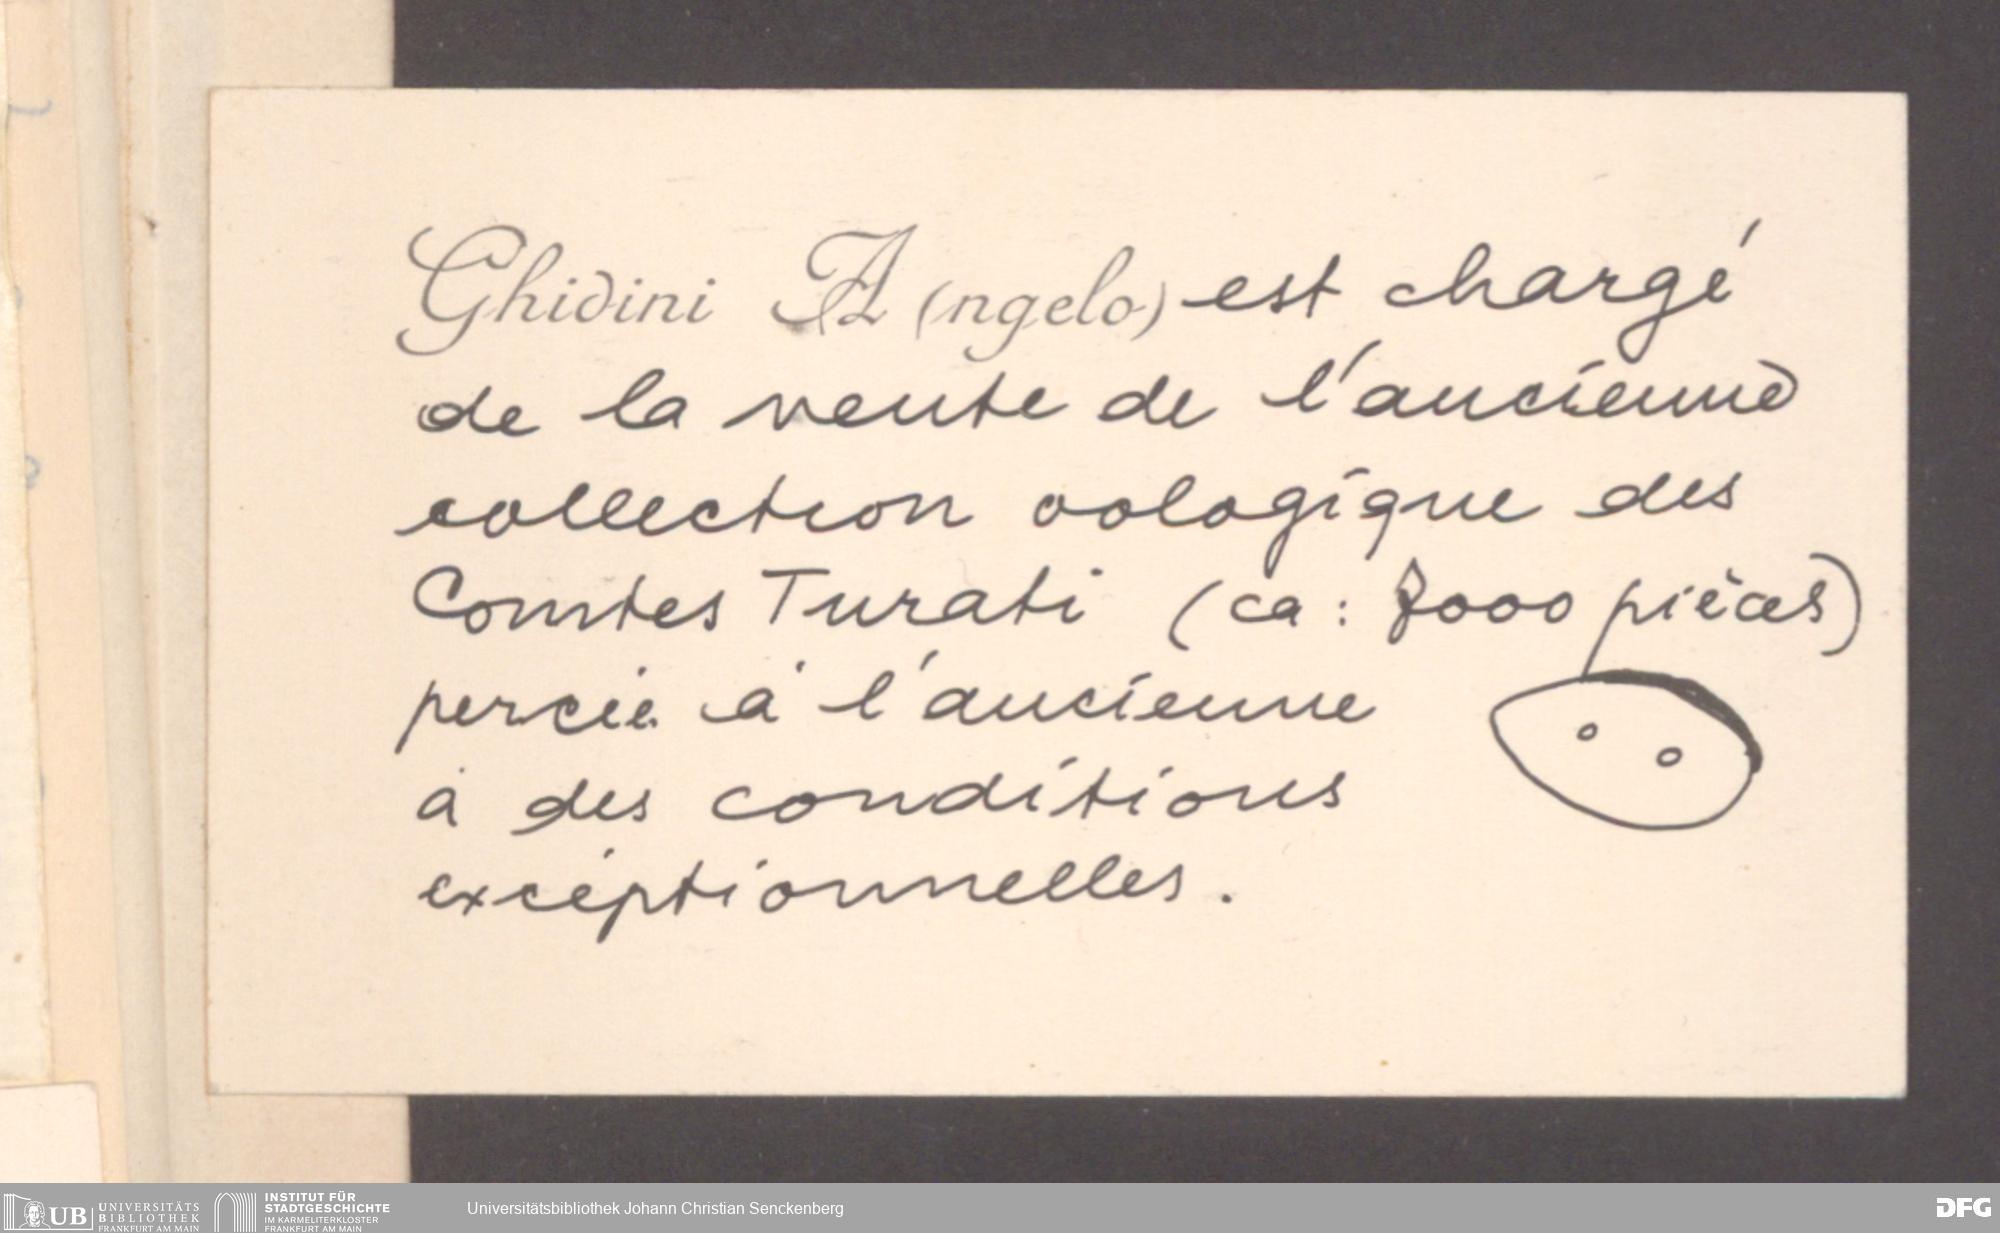 Ghidini A (ngelo) est chargé
de la vente de l'ancienne
collection oologique des
Comtes Turati (ca: 8000 pièces)
percée à l'ancienne
à des conditions
excéptionnelles.
UB UNIVERSITÄTS
BIBLIOTHEK
FRANKFURT AM MAIN
INSTITUT FÜR
STADTGESCHICHTE
IM KARMELITERKLOSTER
FRANKFURT AM MAIN
Universitätsbibliothek Johann Christian Senckenberg
DFG